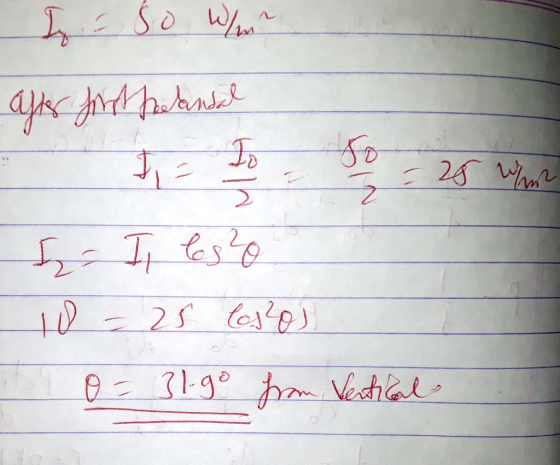 I₀ = 50 W/m²
After first polarised
I₁ = I₀/2 = 50/2 = 25 W/m²
I₂ = I₁ cos²θ
10 = 25 cos²θ
θ = 31.9° from Vertical